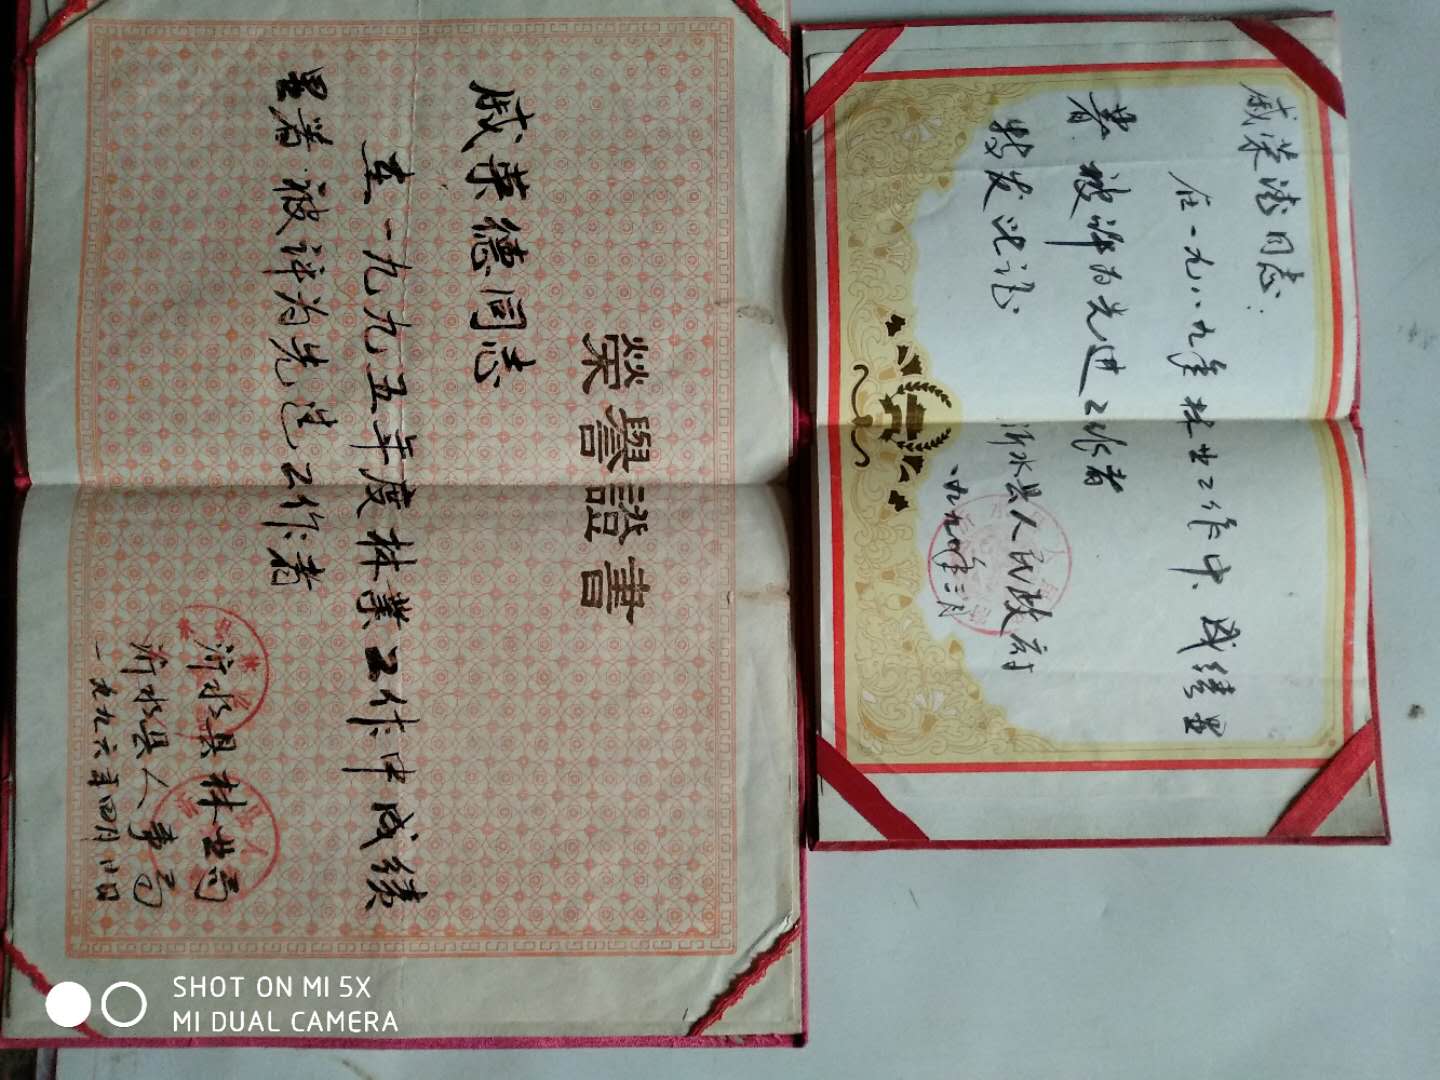 榮譽證書
戚荣德同志
在一九九五年度林業工作中成绩
显著被评为先进工作者
沂水县林业局
沂水县人事局
一九九六年四月廿日
戚荣德同志:
在一九八九年林业工作中,成绩显
著,被评为先进工作者
特发此证
沂水县人民政府
一九九〇年三月
SHOT ON MI 5X
MI DUAL CAMERA